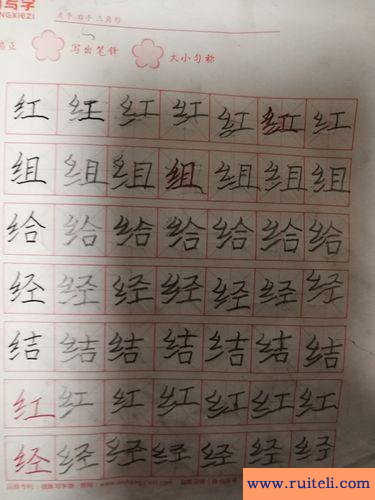 写字
NGXIEZI
左手 右手 三角形
端正 写出笔锋 大小匀称
红 红 红 红 红 红 红
组 组 组 组 组 组 组
给 给 给 给 给 给 给
经 经 经 经 经 经 经
结 结 结 结 结 结 结
红 红 红 红 红 红 红
经 经 经 经 经 经 经
www.ruiteli.com